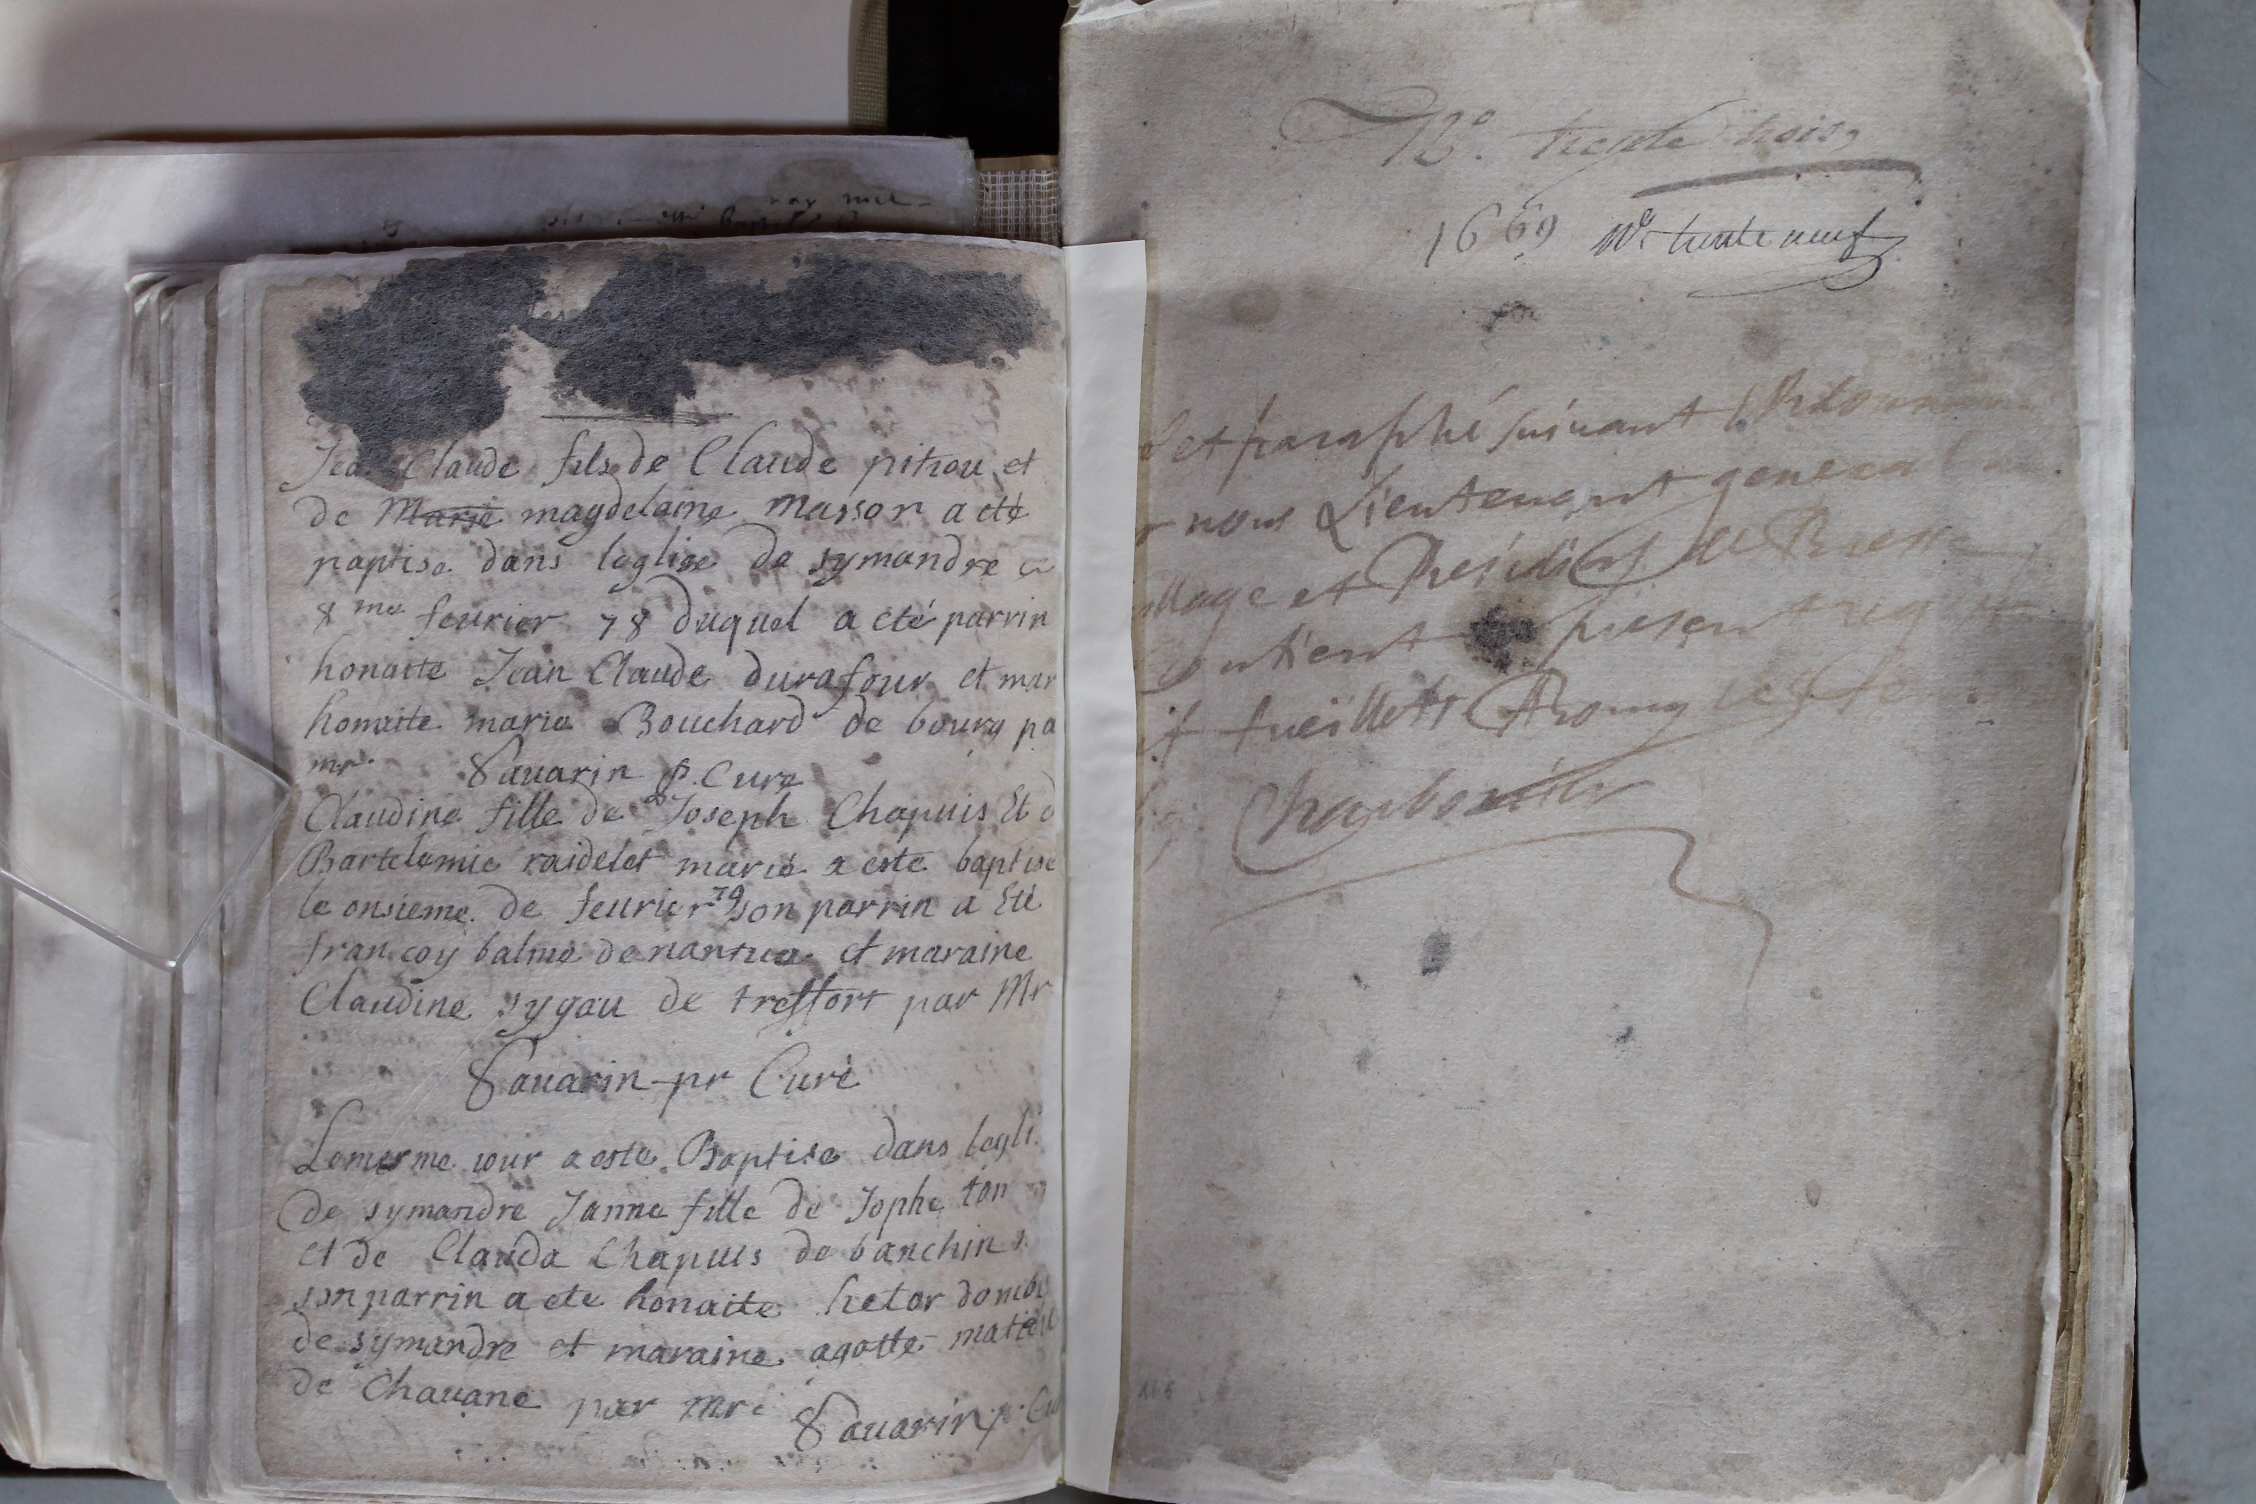 Jean Claude fils de Claude pitiou et
de Marie magdelaine masson a eté
baptise dans leglise de symandre
8 me feurier 78 duquel a eté parrin
honaite Jean Claude durafour et mar
honaite marie Bouchard de bourg pa
mr. Sauarin p. Cure
Claudine fille de Joseph Chapuis Et d
Bartelemie raidelet marié a este baptise
le onsieme de feurier 79 son parrin a Eté
francoy balme de nantua et maraine
Claudine sygau de treffort par Mr
Sauarin pr Curé
Lemesme iour a este Baptise dans legli
de symandre Janne fille de Jophe ton
et de Clauda Chapuis de banchin
son parrin a ete honaite hetor domb
de symandre et maraine agatte
de Chauane par mre Sauarin p. Cu
No. trente trois
1669 No trente neuf
et paraphé suiuant
r nous Lieutenant general
illage et Presidial de Bresse
Contient present
it fueillets
Charbonnier